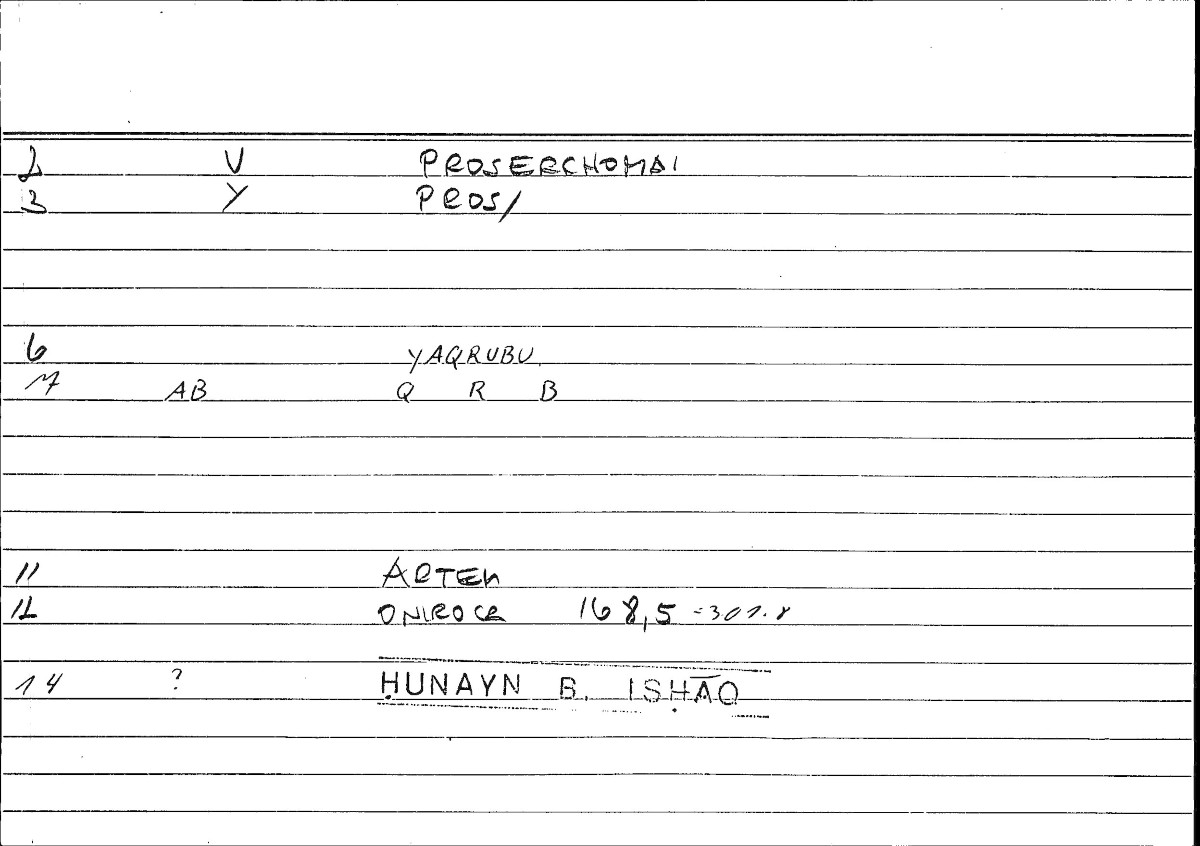 2 V PROSERCHOMAI
3 Y PROS/
6 YAQRUBU
7 AB Q R B
11 ARTEM
12 ONIROCR 168,5 =301.8
14 ? ḤUNAYN B. ISḤĀQ